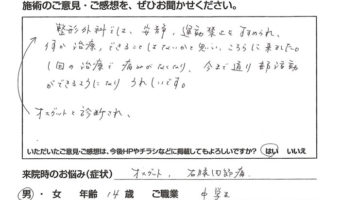 施術のご意見・ご感想を、ぜひお聞かせください。
整形外科では、安静、運動禁止をすすめられ、
何か治療できることはないかと思い、こちらに来ました。
1回の治療で痛みがなくなり、今まで通り部活動
ができるようになり うれしいです。
オスグットと診断され、
いただいたご意見・ご感想は、今後HPやチラシなどに掲載してもよろしいですか? はい いいえ
来院時のお悩み(症状) オスグット、右膝
男・女 年齢 14歳 ご職業 中学生